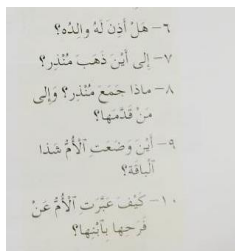 ٦- هَلْ أَذِنَ لَهُ والدُه؟
٧- إلى أَيْنَ ذَهَبَ مُنْذِر؟
٨- ماذا جَمَعَ مُنْذِر؟ وَإلى
مَنْ قَدَّمَها؟
٩- أَيْنَ وَضَعَتِ ٱلْأُمُّ شَذا
ٱلْباقَة؟
١٠- كَيْفَ عَبَّرَت ٱلْأُمُّ عَنْ
فَرَحِها بِٱبْنِها؟